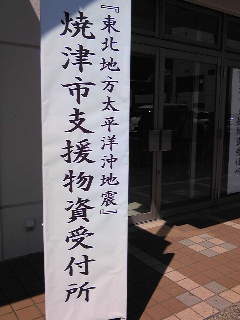 『東北地方太平洋沖地震』
焼津市支援物資受付所